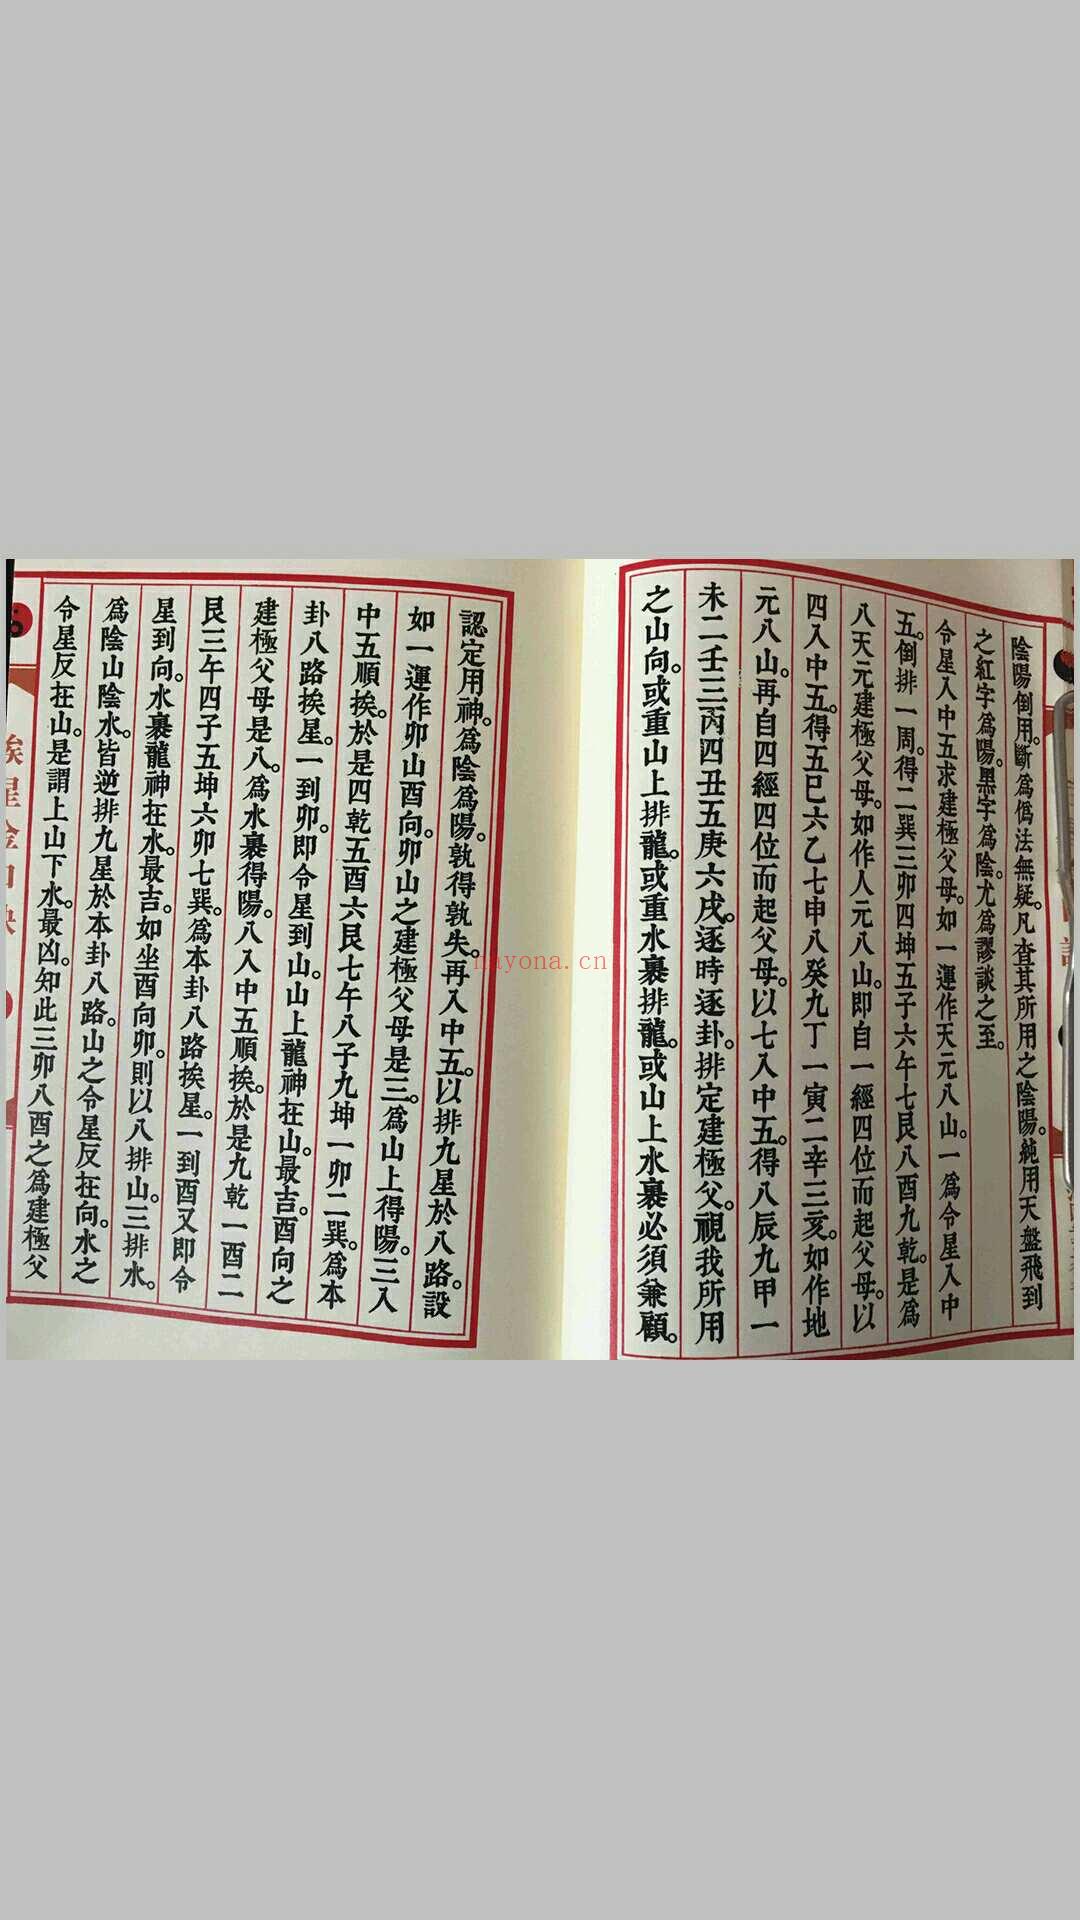 陰陽倒用。斷爲僞法無疑。凡查其所用之陰陽。純用天盤飛到
之紅字爲陽。黑字爲陰。尤爲謬談之至。
令星入中五求建極父母。如一運作天元八山。一爲令星入中
五。倒排一周。得二巽三卯四坤五子六午七艮八酉九乾。是爲
八天元建極父母。如作人元八山。即自一經四位而起父母。以
四入中五。得五巳六乙七申八癸九丁一寅二辛三亥。如作地
元八山。再自四經四位而起父母。以七入中五。得八辰九甲一
未二壬三丙四丑五庚六戌。逐時逐卦。排定建極父。視我所用
之山向。或重山上排龍。或重水裏排龍。或山上水裏必須兼顧。
認定用神。爲陰爲陽。孰得孰失。再入中五。以排九星於八路。設
如一運作卯山酉向。卯山之建極父母是三。爲山上得陽。三入
中五順挨。於是四乾五酉六艮七午八子九坤一卯二巽。爲本
卦八路挨星。一到卯。即令星到山。山上龍神在山。最吉。酉向之
建極父母是八。爲水裏得陽。八入中五順挨。於是九乾一酉二
艮三午四子五坤六卯七巽。爲本卦八路挨星。一到酉又即令
星到向。水裏龍神在水。最吉。如坐酉向卯。則以八排山。三排水。
爲陰山陰水。皆逆排九星於本卦八路。山之令星反在向。水之
令星反在山。是謂上山下水。最凶。知此三卯八酉之爲建極父
mayona.cn